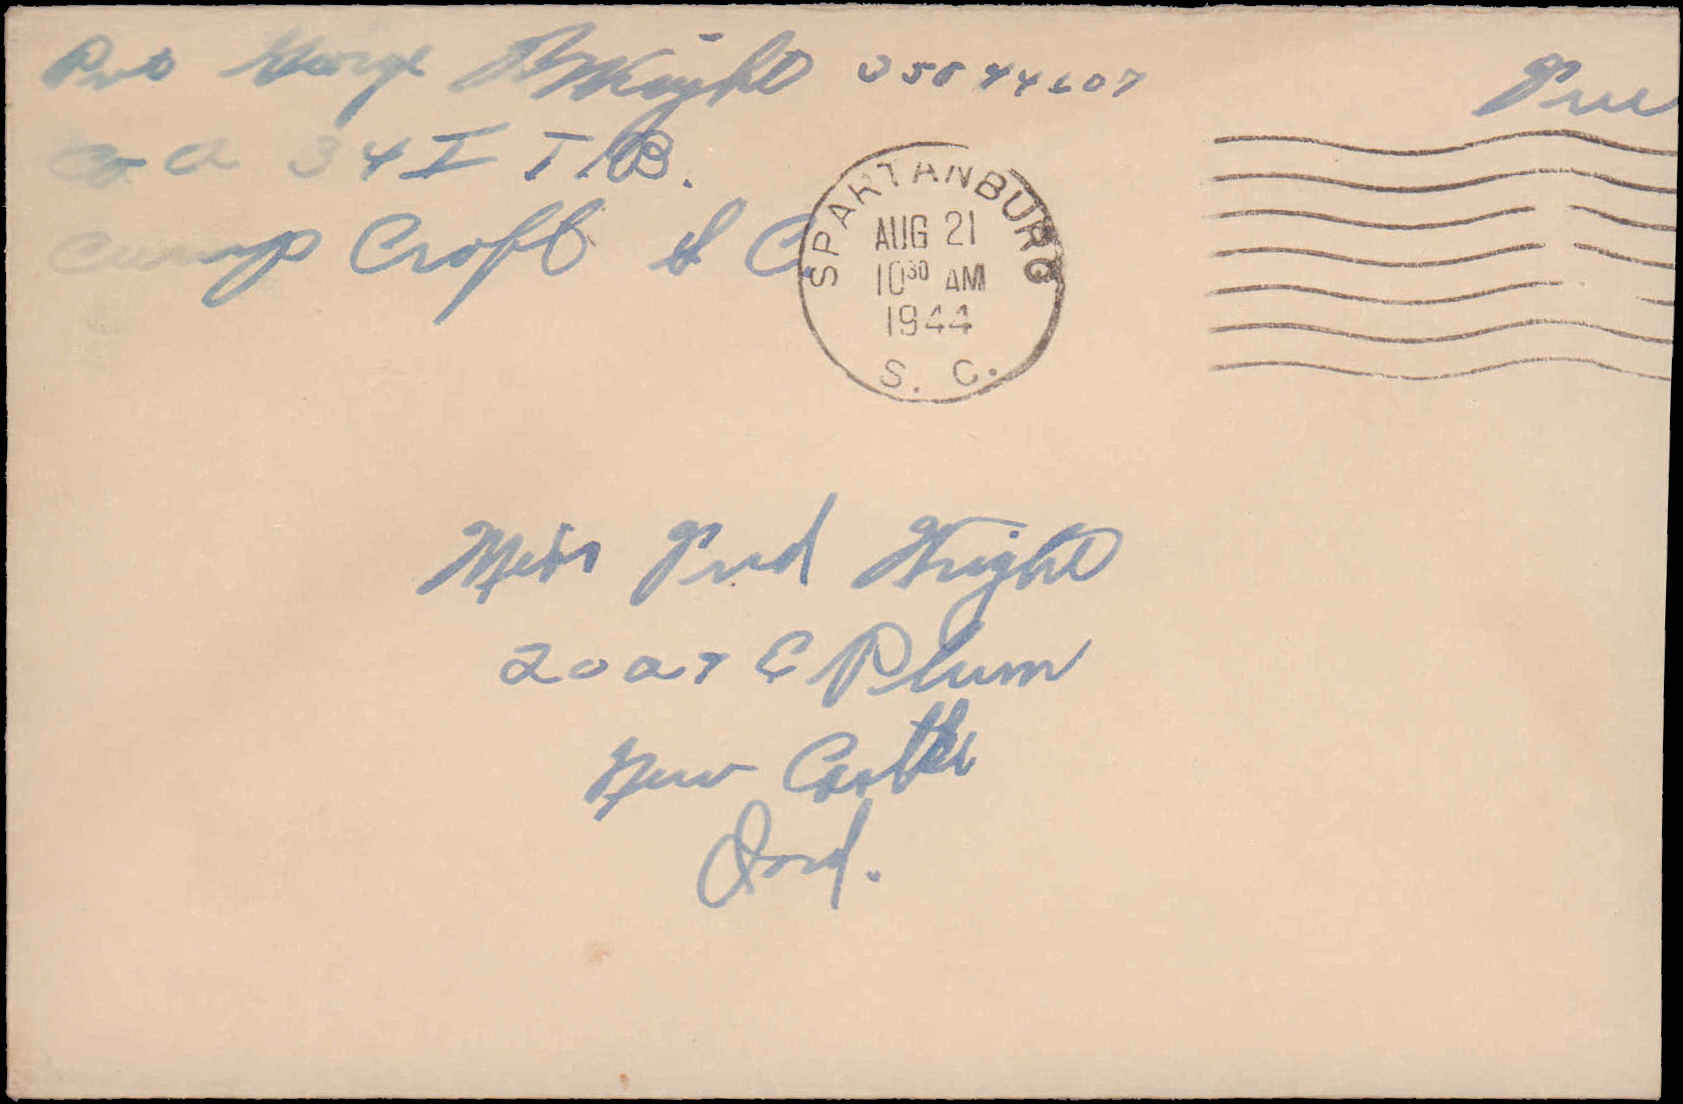 Pvt George B Wright 35844607
Co A 34 I T B.
Camp Croft S C
Free
SPARTANBURG
AUG 21
10 30 AM
1944
S. C.
Miss Fred Wright
2027 C Plum
New Castle
Ind.